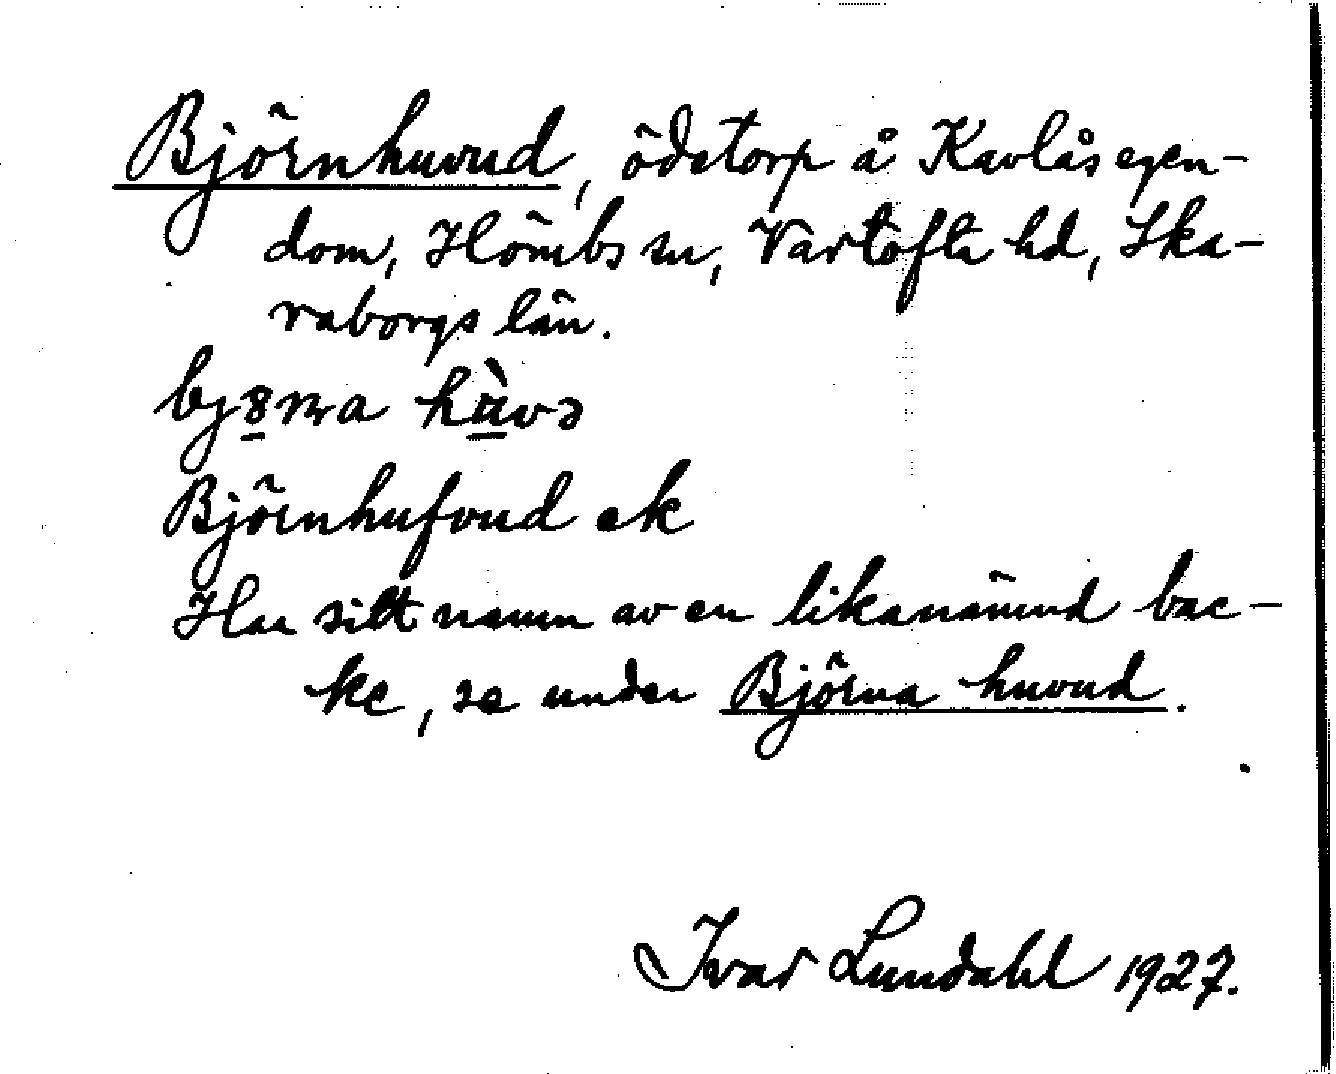 Björnhuvud, ödetorp å Kavlås egen-
dom, Hömbs sn, Vartofta hd, Ska-
raborgs län.
Björnhufvud ek
Har sitt namn av en likanämnd bac-
ke, se under Björna huvud.
Ivar Lundahl 1927.